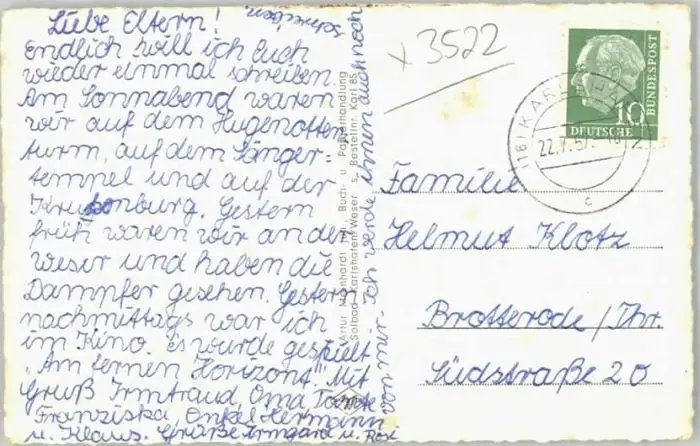 Liebe Eltern!
Endlich will ich Euch
wieder einmal schreiben.
Am Sonnabend waren
wir auf dem Hugenotten
turm, auf dem Sänger=
tempel und auf der
Krukenburg. Gestern
früh waren wir an der
Weser und haben die
Dampfer gesehen. Gestern
nachmittags war ich
im Kino. Es wurde gespielt
"Am fernen Horizont." Mit
Gruß Irmtraud, Oma Tante
Franziska, Onkel Hermann
u. Klaus. Grüße Irmgard u. Rosi
von mir. Ich werde ihnen auch noch
schreiben.
Buch- u. Papierhandlung
Solbad Karlshafen/Weser
Bestellnr. Karl 85
x 3522
10
DEUTSCHE
BUNDESPOST
(16) KARLSHAFEN
22.7.57
c
Familie
Helmut Klotz
Brotterode/Thr.
Südstraße 20